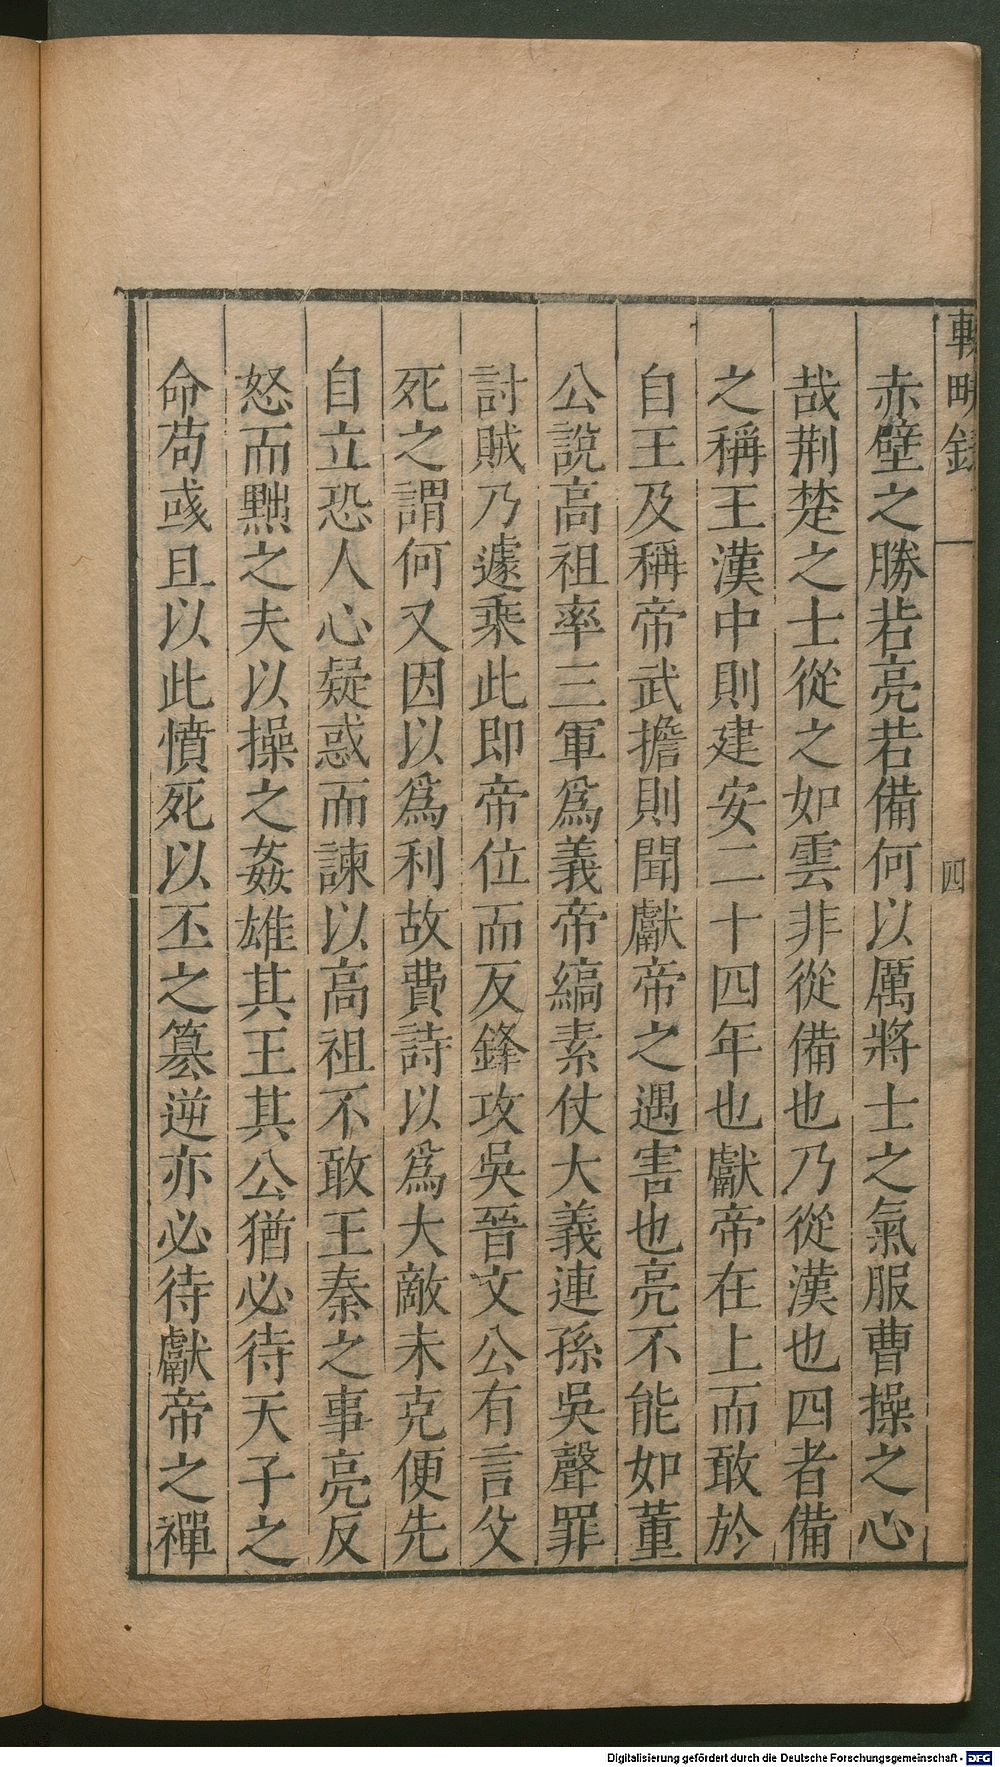 赤壁之勝若亮若備何以厲將士之氣服曹操之心
哉荆楚之士從之如雲非從備也乃從漢也四者備
之稱王漢中則建安二十四年也獻帝在上而敢於
自王及稱帝武擔則聞獻帝之遇害也亮不能如董
公說高祖率三軍爲義帝縞素仗大義連孫吳聲罪
討賊乃遽乘此即帝位而反鋒攻吳晉文公有言父
死之謂何又因以爲利故費詩以爲大敵未克便先
自立恐人心疑惑而諫以高祖不敢王秦之事亮反
怒而黜之夫以操之姦雄其王其公猶必待天子之
命苟彧且以此憤死以丕之篡逆亦必待獻帝之禪
四
Digitalisierung gefördert durch die Deutsche Forschungsgemeinschaft - DFG